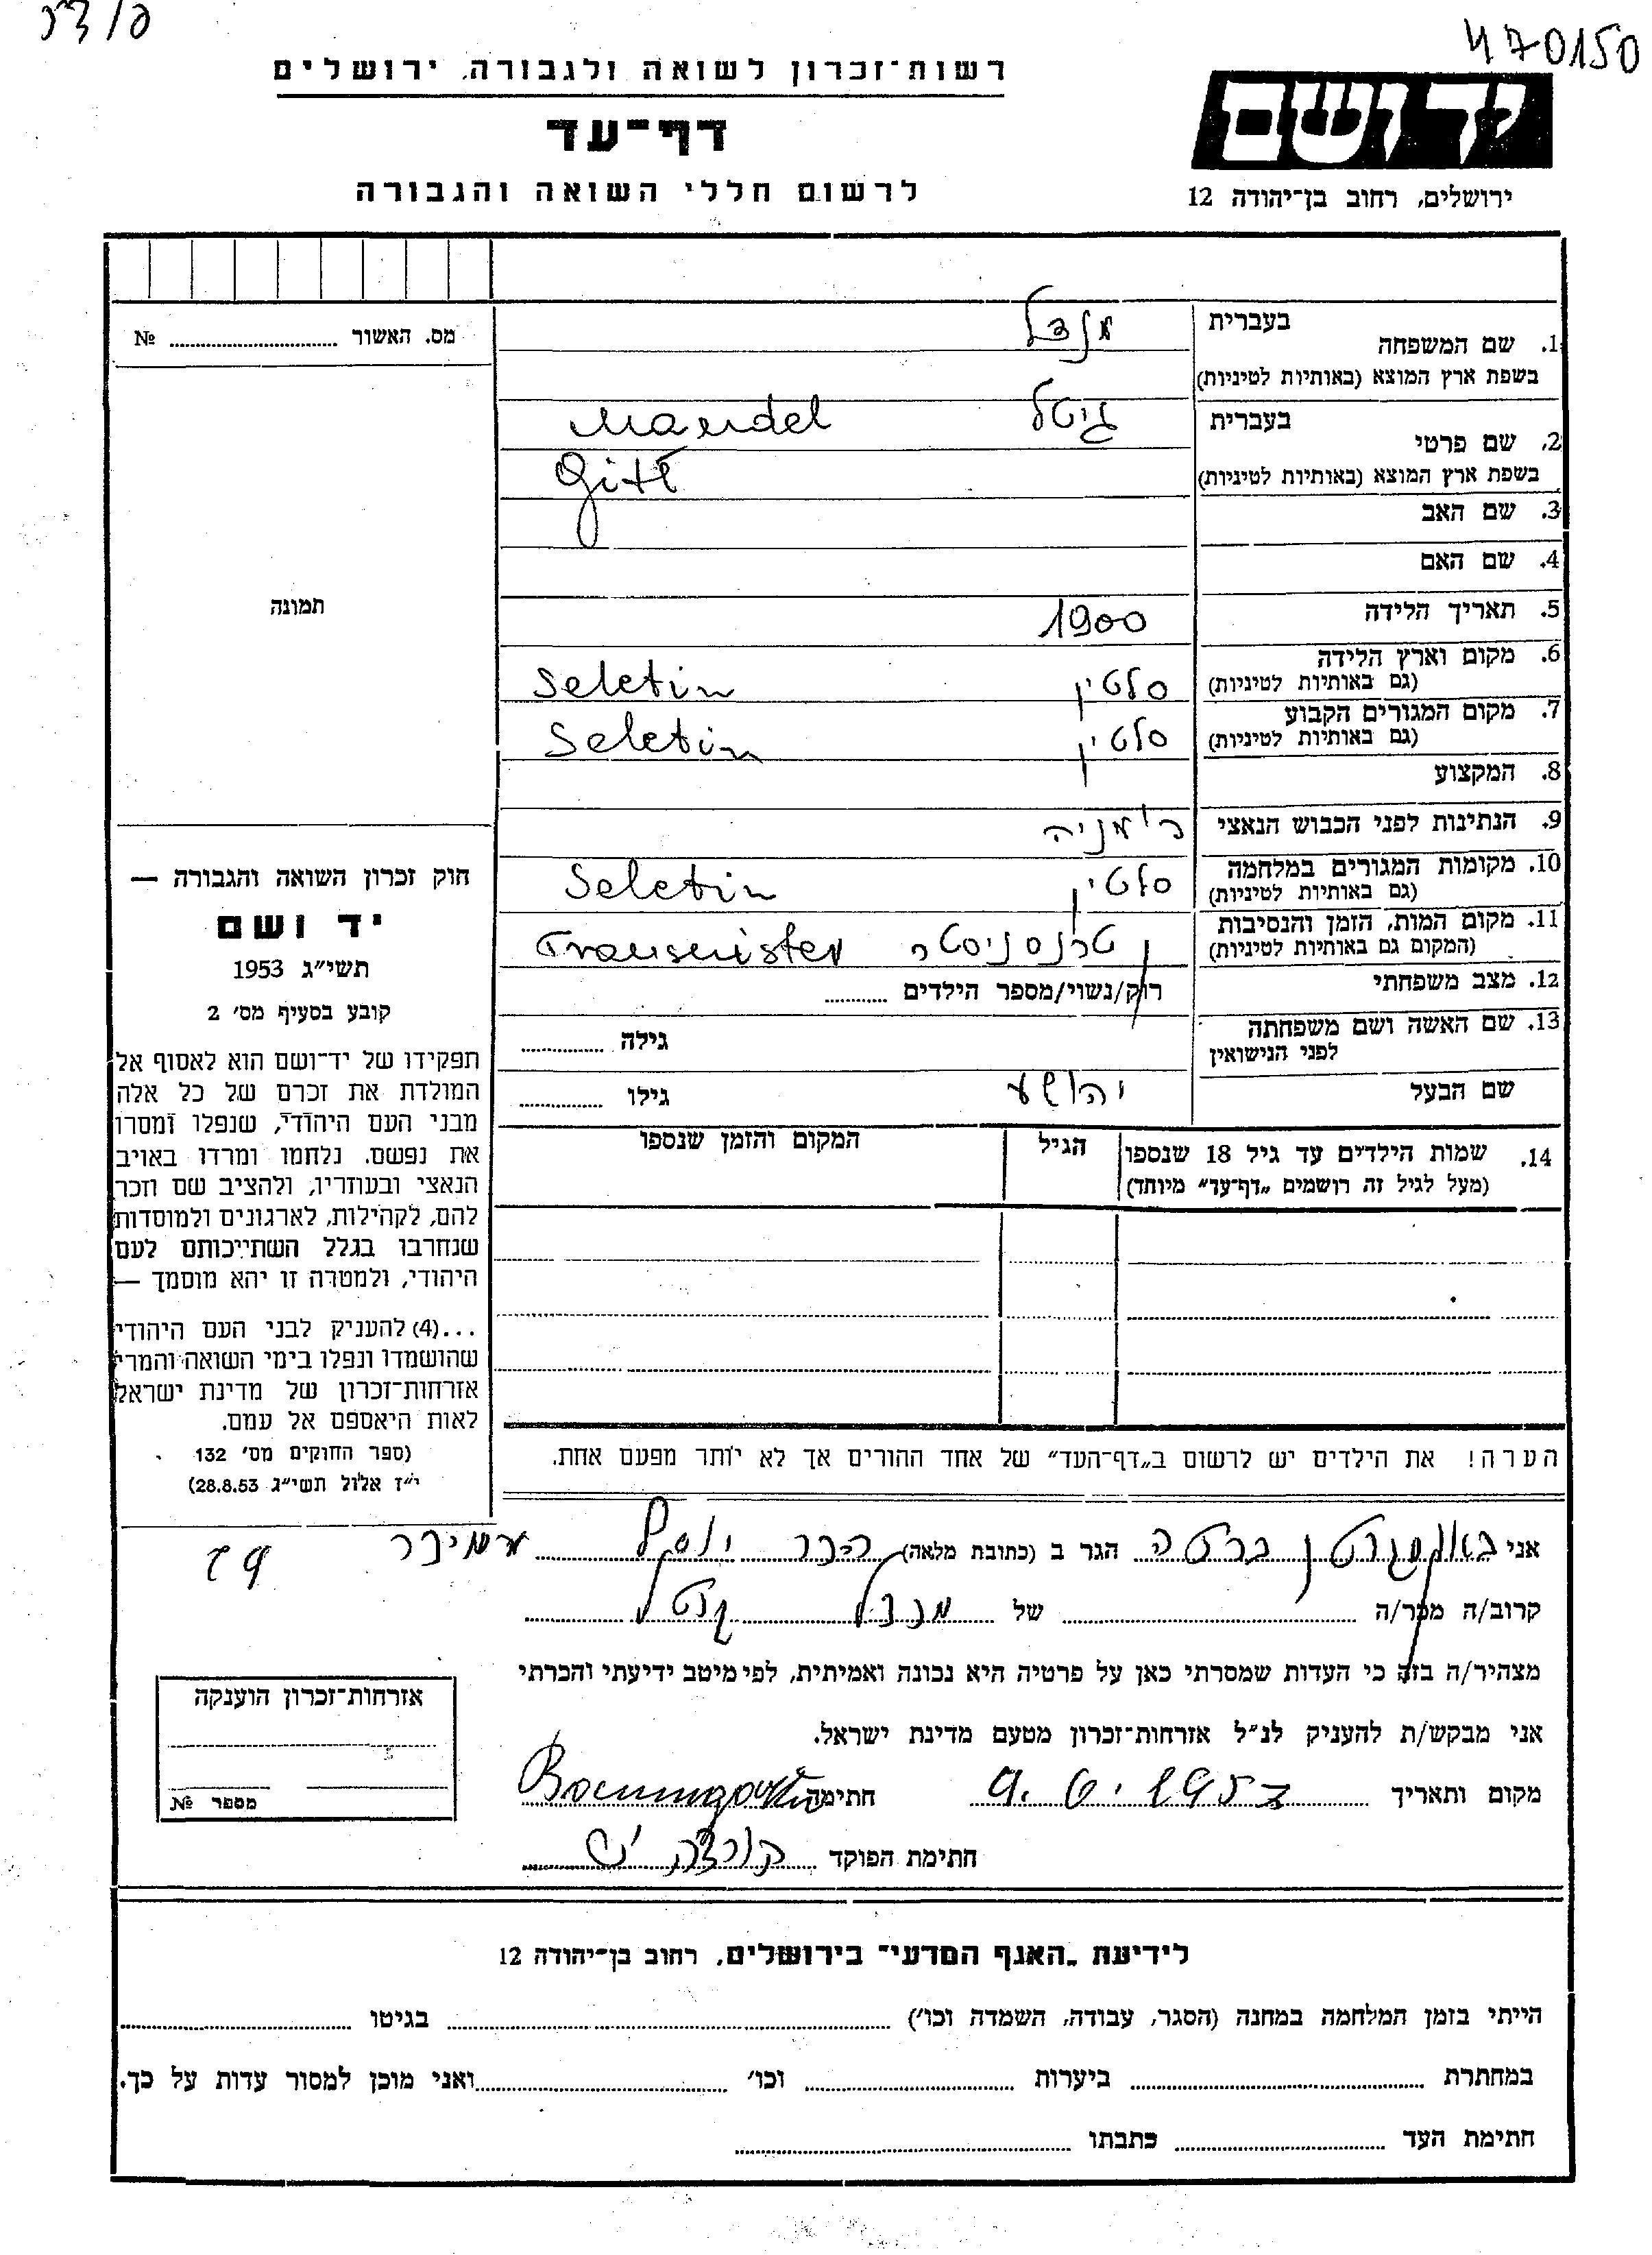 470150
רשות־זכרון לשואה ולגבורה, ירושלים
יד ושם
דף־עד
ירושלים, רחוב בן־יהודה 12
לרשום חללי השואה והגבורה
מס. האשור № ..........
1. שם המשפחה בעברית מנדל
בשפת ארץ המוצא (באותיות לטיניות)
Mandel
2. שם פרטי בעברית גיטל
בשפת ארץ המוצא (באותיות לטיניות)
Gitl
3. שם האב
4. שם האם
תמונה
5. תאריך הלידה 1900
6. מקום וארץ הלידה סלטין Seletin
(גם באותיות לטיניות)
7. מקום המגורים הקבוע סלטין Seletin
(גם באותיות לטיניות)
8. המקצוע
9. הנתינות לפני הכבוש הנאצי רומניה
10. מקומות המגורים במלחמה סלטין Seletin
(גם באותיות לטיניות)
11. מקום המות, הזמן והנסיבות טרנסניסטר Transnister
(המקום גם באותיות לטיניות)
12. מצב משפחתי רוק/נשוי/מספר הילדים ..........
13. שם האשה ושם משפחתה גילה ..........
לפני הנישואין
שם הבעל יהושע גילו ..........
14. שמות הילדים עד גיל 18 שנספו הגיל המקום והזמן שנספו
(מעל לגיל זה רושמים „דף־עד״ מיוחד)
חוק זכרון השואה והגבורה —
יד ושם
תשי״ג 1953
קובע בסעיף מס׳ 2
תפקידו של יד־ושם הוא לאסוף אל
המולדת את זכרם של כל אלה
מבני העם היהודי, שנפלו ומסרו
את נפשם, נלחמו ומרדו באויב
הנאצי ובעוזריו, ולהציב שם וזכר
להם, לקהילות, לארגונים ולמוסדות
שנחרבו בגלל השתייכותם לעם
היהודי, ולמטרה זו יהא מוסמך —
...(4) להעניק לבני העם היהודי
שהושמדו ונפלו בימי השואה והמרי
אזרחות־זכרון של מדינת ישראל
לאות היאספם אל עמם.
(ספר החוקים מס׳ 132
י״ז אלול תשי״ג 28.8.53)
הערה! את הילדים יש לרשום ב„דף־העד״ של אחד ההורים אך לא יותר מפעם אחת.
אני באומגרטן ברטה הגר ב (כתובת מלאה) עמידר
קרוב/ה מכר/ה .......... של מנדל גיטל
מצהיר/ה בזה כי העדות שמסרתי כאן על פרטיה היא נכונה ואמיתית, לפי מיטב ידיעתי והכרתי
אני מבקש/ת להעניק לנ״ל אזרחות־זכרון מטעם מדינת ישראל.
מקום ותאריך 9. 6. 1957 חתימה Baumgarten
חתימת הפוקד
אזרחות־זכרון הוענקה
מספר №
לידיעת „האגף המדעי״ בירושלים, רחוב בן־יהודה 12
הייתי בזמן המלחמה במחנה (הסגר, עבודה, השמדה וכו׳) .......... בגיטו ..........
במחתרת .......... ביערות .......... וכו׳ .......... ואני מוכן למסור עדות על כך.
חתימת העד .......... כתבתו ..........